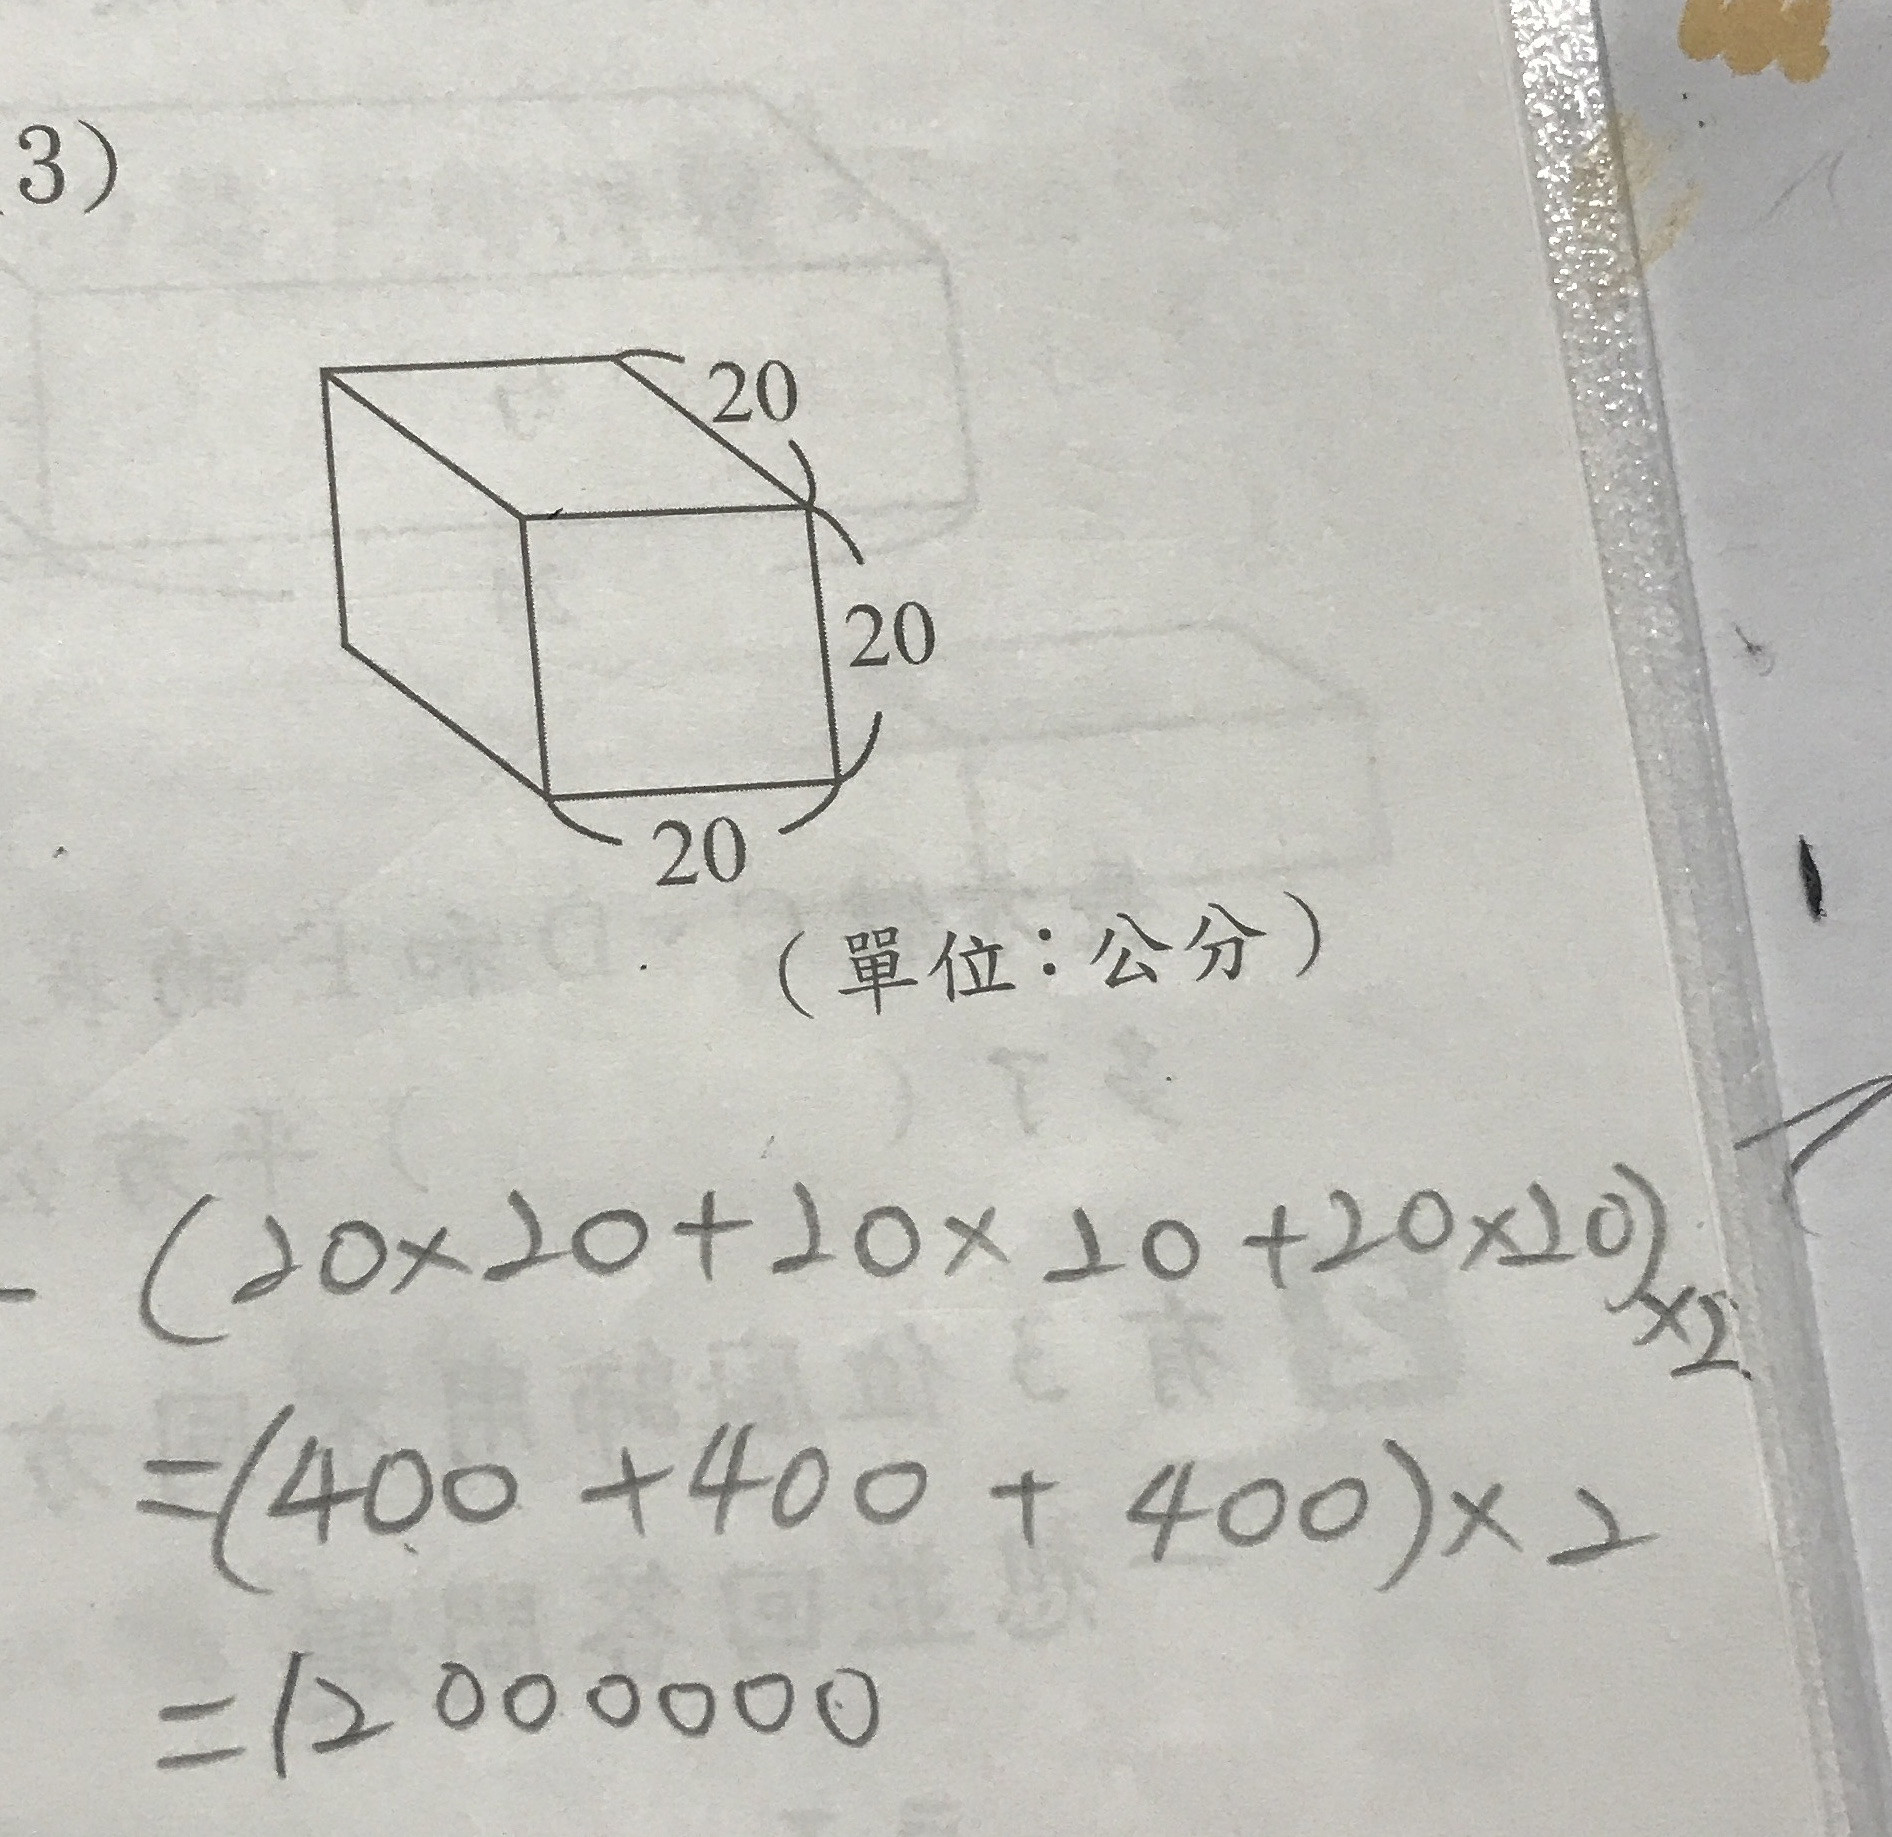 3)
20
20
20
(單位：公分)
(20×20+20×20+20×20)×2
=(400+400+400)×2
=12000000